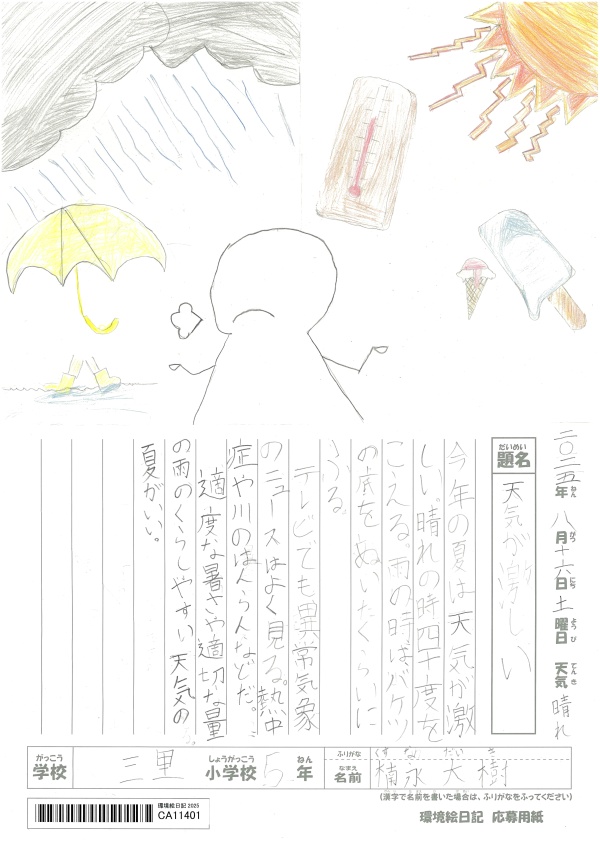 二〇二五年 八月十六日 土曜日 天気 晴れ
ねん がつ にち ようび てんき
だいめい
題名
天気が激しい
今年の夏は天気が激
しい。晴れの時四十度を
こえる。雨の時はバケツ
の底をぬいたくらいに
ふる。
テレビでも異常気象
のニュースはよく見る。熱中
症や川のはんらんなどだ。
適度な暑さや適切な量
の雨のくらしやすい天気の
夏がいい。
がっこう しょうがっこう ねん ふりがな くすなが だいき
学校 三里 小学校 5年 なまえ 名前 楠永 大樹
(漢字で名前を書いた場合は、ふりがなをふってください)
環境絵日記 2025
CA11401
環境絵日記 応募用紙